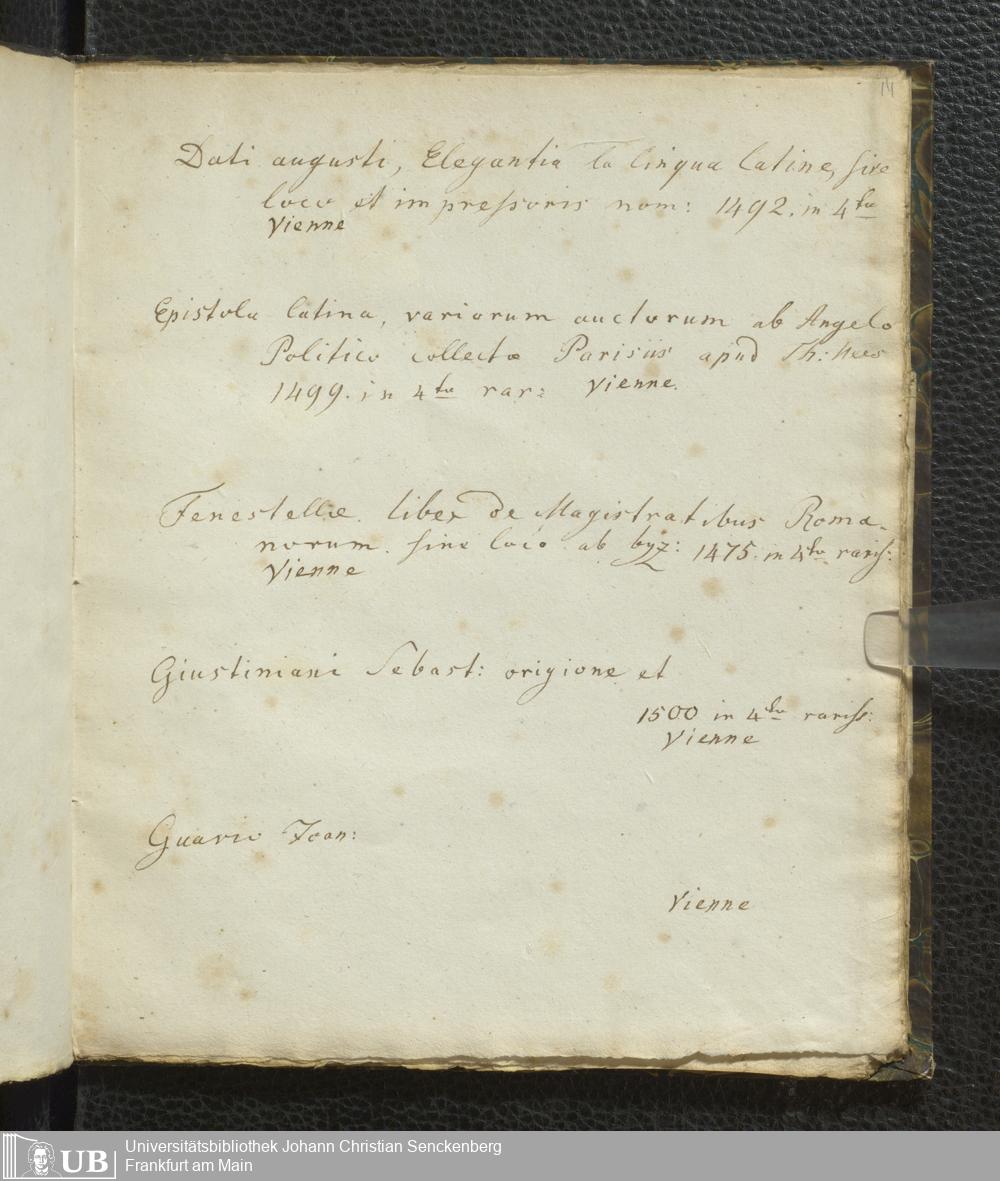 14
Dati augusti, Elegantia la lingua latine, sive
loco et impressoris nom: 1492. in 4to
Vienne
Epistola latina, variorum auctorum ab Angelo
Politico collectæ Parisiis apud Th:
1499. in 4to rar: Vienne.
Fenestellæ. liber de Magistratibus Roma-
norum. sine loco ab byz: 1475. in 4to rariss:
Vienne
Giustiniani Sebast: origione et
1500 in 4to rariss:
Vienne
Guarie Joan:
Vienne
UB
Universitätsbibliothek Johann Christian Senckenberg
Frankfurt am Main